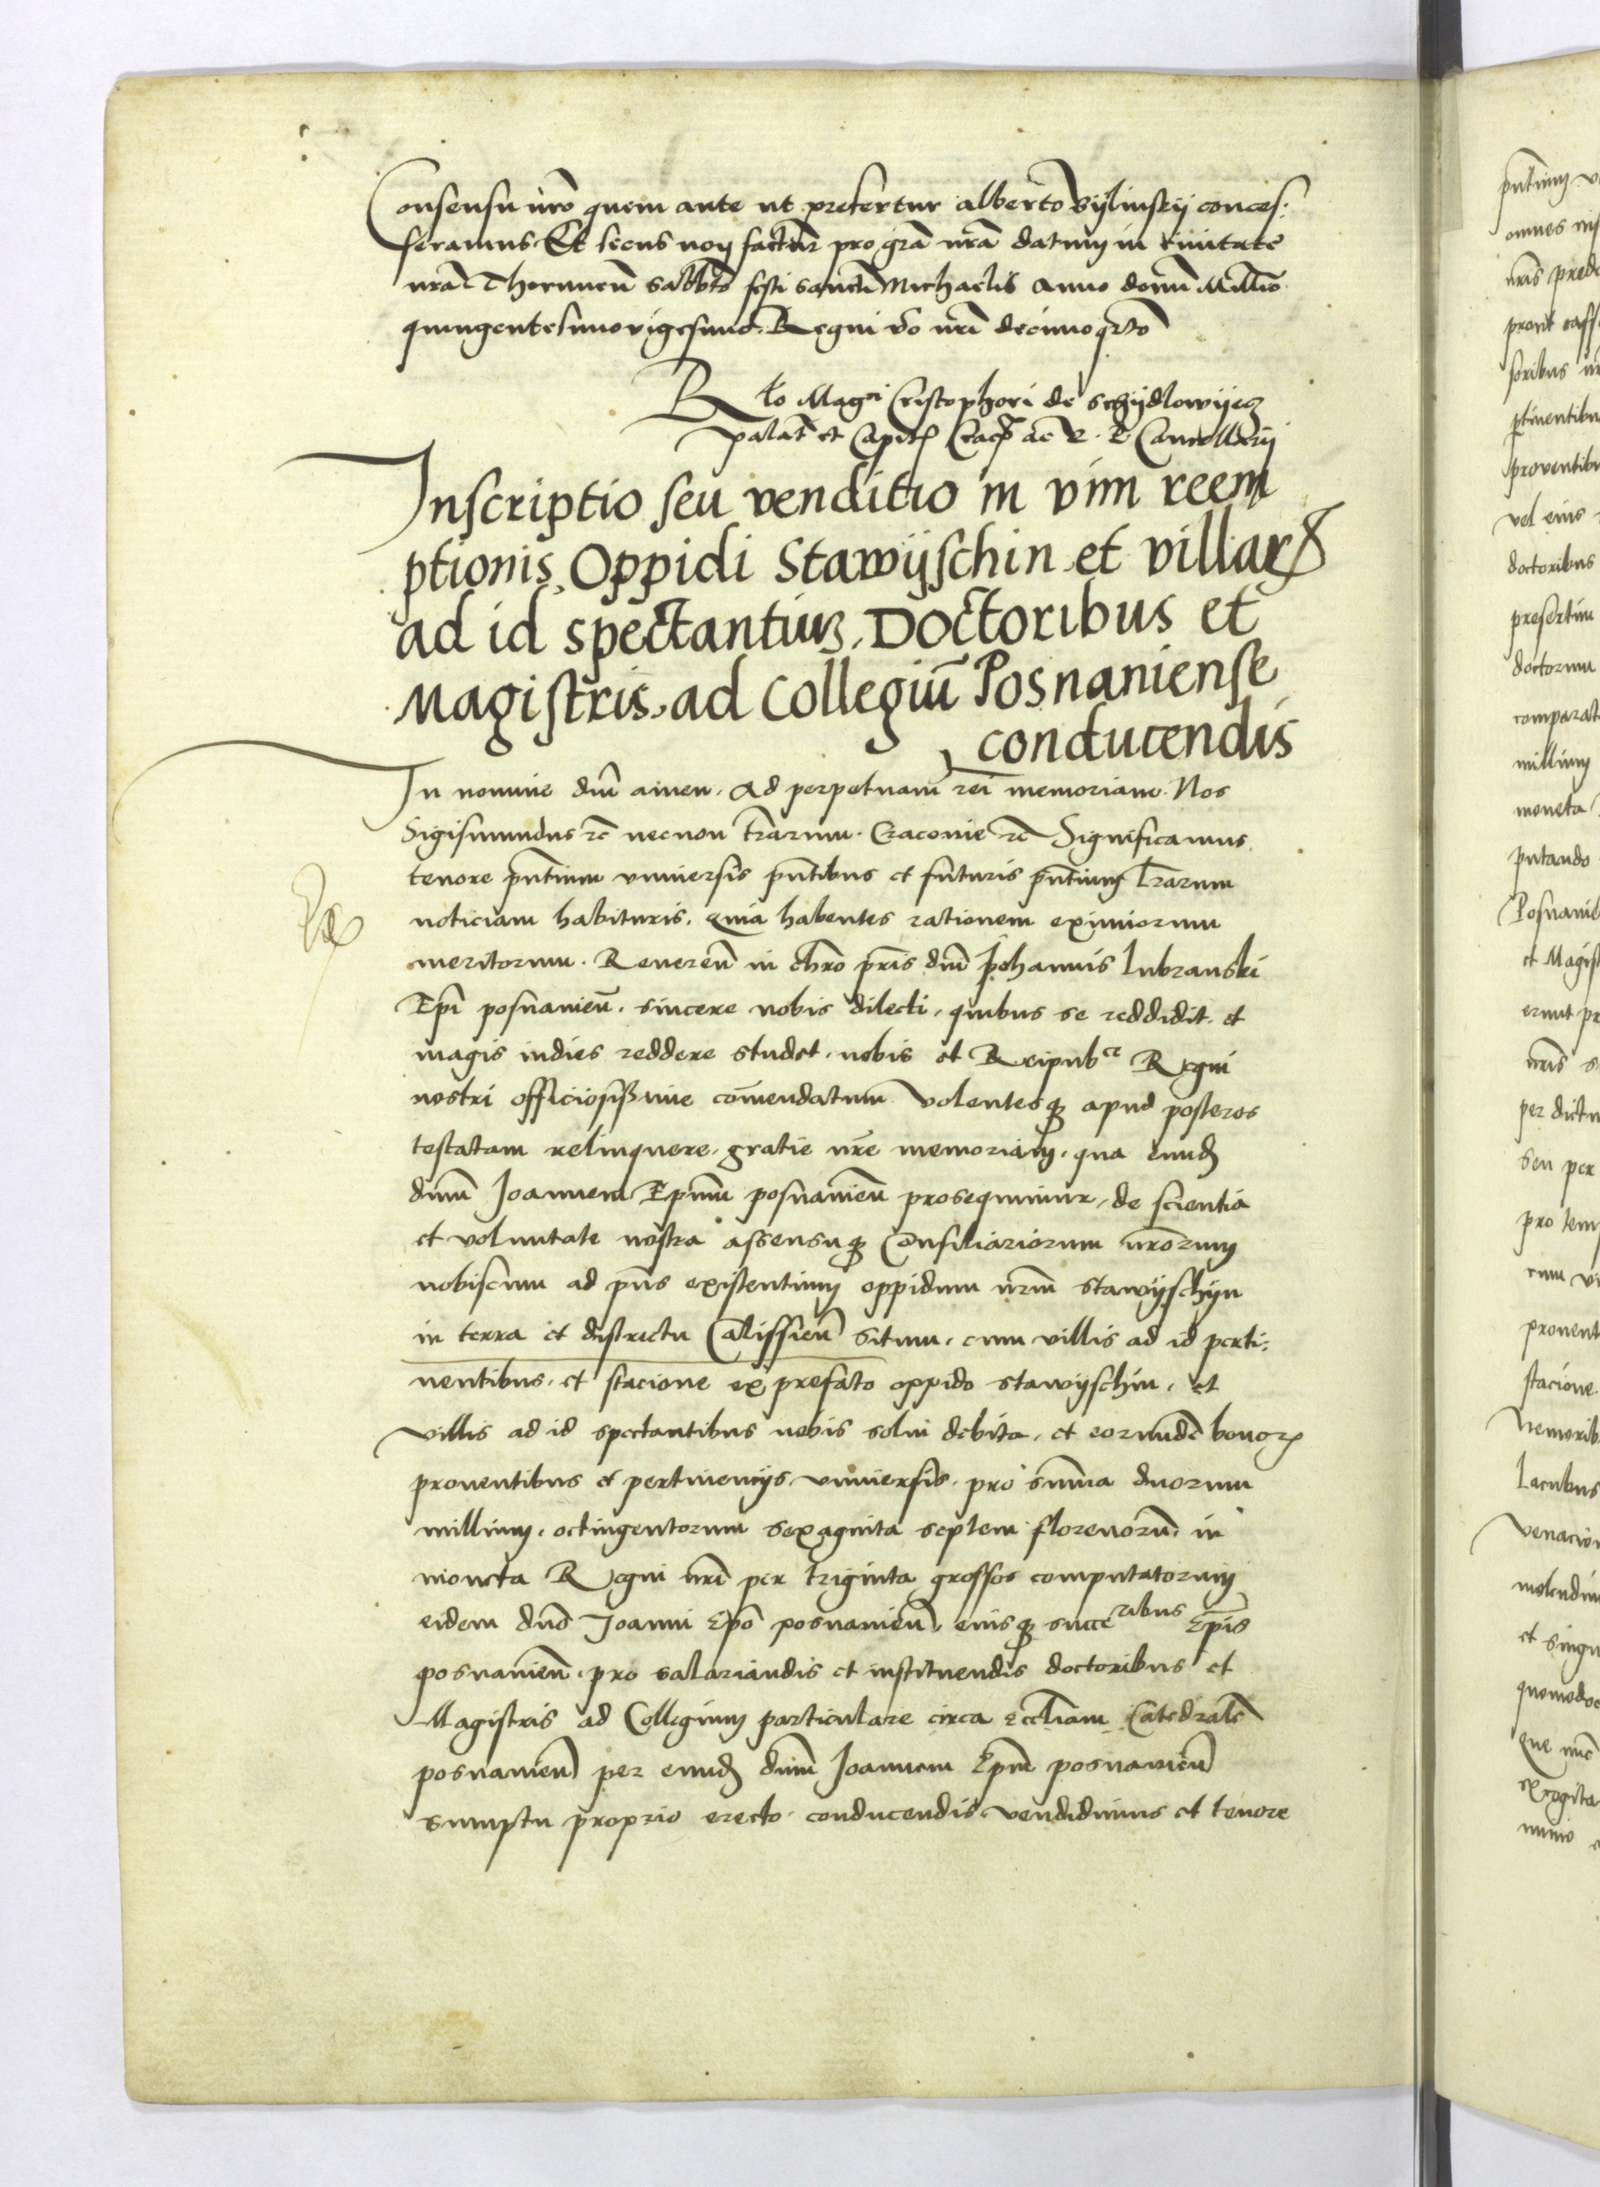 Consensu nr̃o quem ante ut prefertur alberto Bÿlinskÿ conces:
seramus Et secus non factur̃ pro gr̃a nr̃a datum in Civitate
nr̃a Thorunen̄ Sabbato festi sancti Michaelis Anno domī Mill̄mo
quingentesimo vigesimo. Regni v̄o nr̃i decimoqr̄to
Rlo Magci Cristophori de Schÿdlowÿecz
palatī et Capitī Crac̄ ac R. P. Cancellarij
Inscriptio seu venditio in vim reem
ptionis Oppidi Stawÿschin et villarꝝ
ad id spectantiuꝫ, Doctoribus et
Magistris, ad Collegiū Posnaniense
conducendis
In nomine dn̄i amen. Ad perpetuam rei memoriam. Nos
Sigismundus rc̄ necnon tr̄arum. Cracovie rc̄ Significamus
tenore pn̄tium universis pn̄tibus et futuris pn̄tium lr̄arum
noticiam habituris. Quia habentes rationem eximiorum
meritorum. Reveren̄ in chr̄o pr̄is dn̄i Johannis Lubranski
Ep̄i posnanien̄. sincere nobis dilecti, quibus se reddidit et
magis indies reddere studet, nobis et Reipubce Regni
nostri officiosissime com̄endatum Volentesqꝫ apud posteros
testatam relinquere gratie nr̄e memoriam, qua eundꝫ
dnūm Joannem Epūm posnanien̄ prosequimur, de scientia
et voluntate nostra assensuqꝫ Consiliariorum nr̄orum
nobiscum ad pn̄s existentium oppidum nr̄um Stawÿschÿn
in terra et districtu Calissien̄ situm, cum villis ad id perti:
nentibus, et stacione ex prefato oppido stawÿschin, et
villis ad id spectantibus nobis solvi debita, et eorundē bonorꝝ
proventibus et pertinencÿs universis, pro sum̄a duorum
millium, octingentorum sexaginta septem florenorū, in
moneta Regni nr̄i per triginta grossos computatorum
eidem dn̄o Joanni Ep̄o posnanien̄, eiusqꝫ succeribus Ep̄is
posnanien̄, pro salariandis et instituendis doctoribus et
Magistris ad Collegium particulare circa eccl̄iam Catedralē
posnanien̄ per eundꝫ dn̄m Joannem Ep̄m posnanien̄
sumptu proprio erecto conducendis vendidimus et tenore